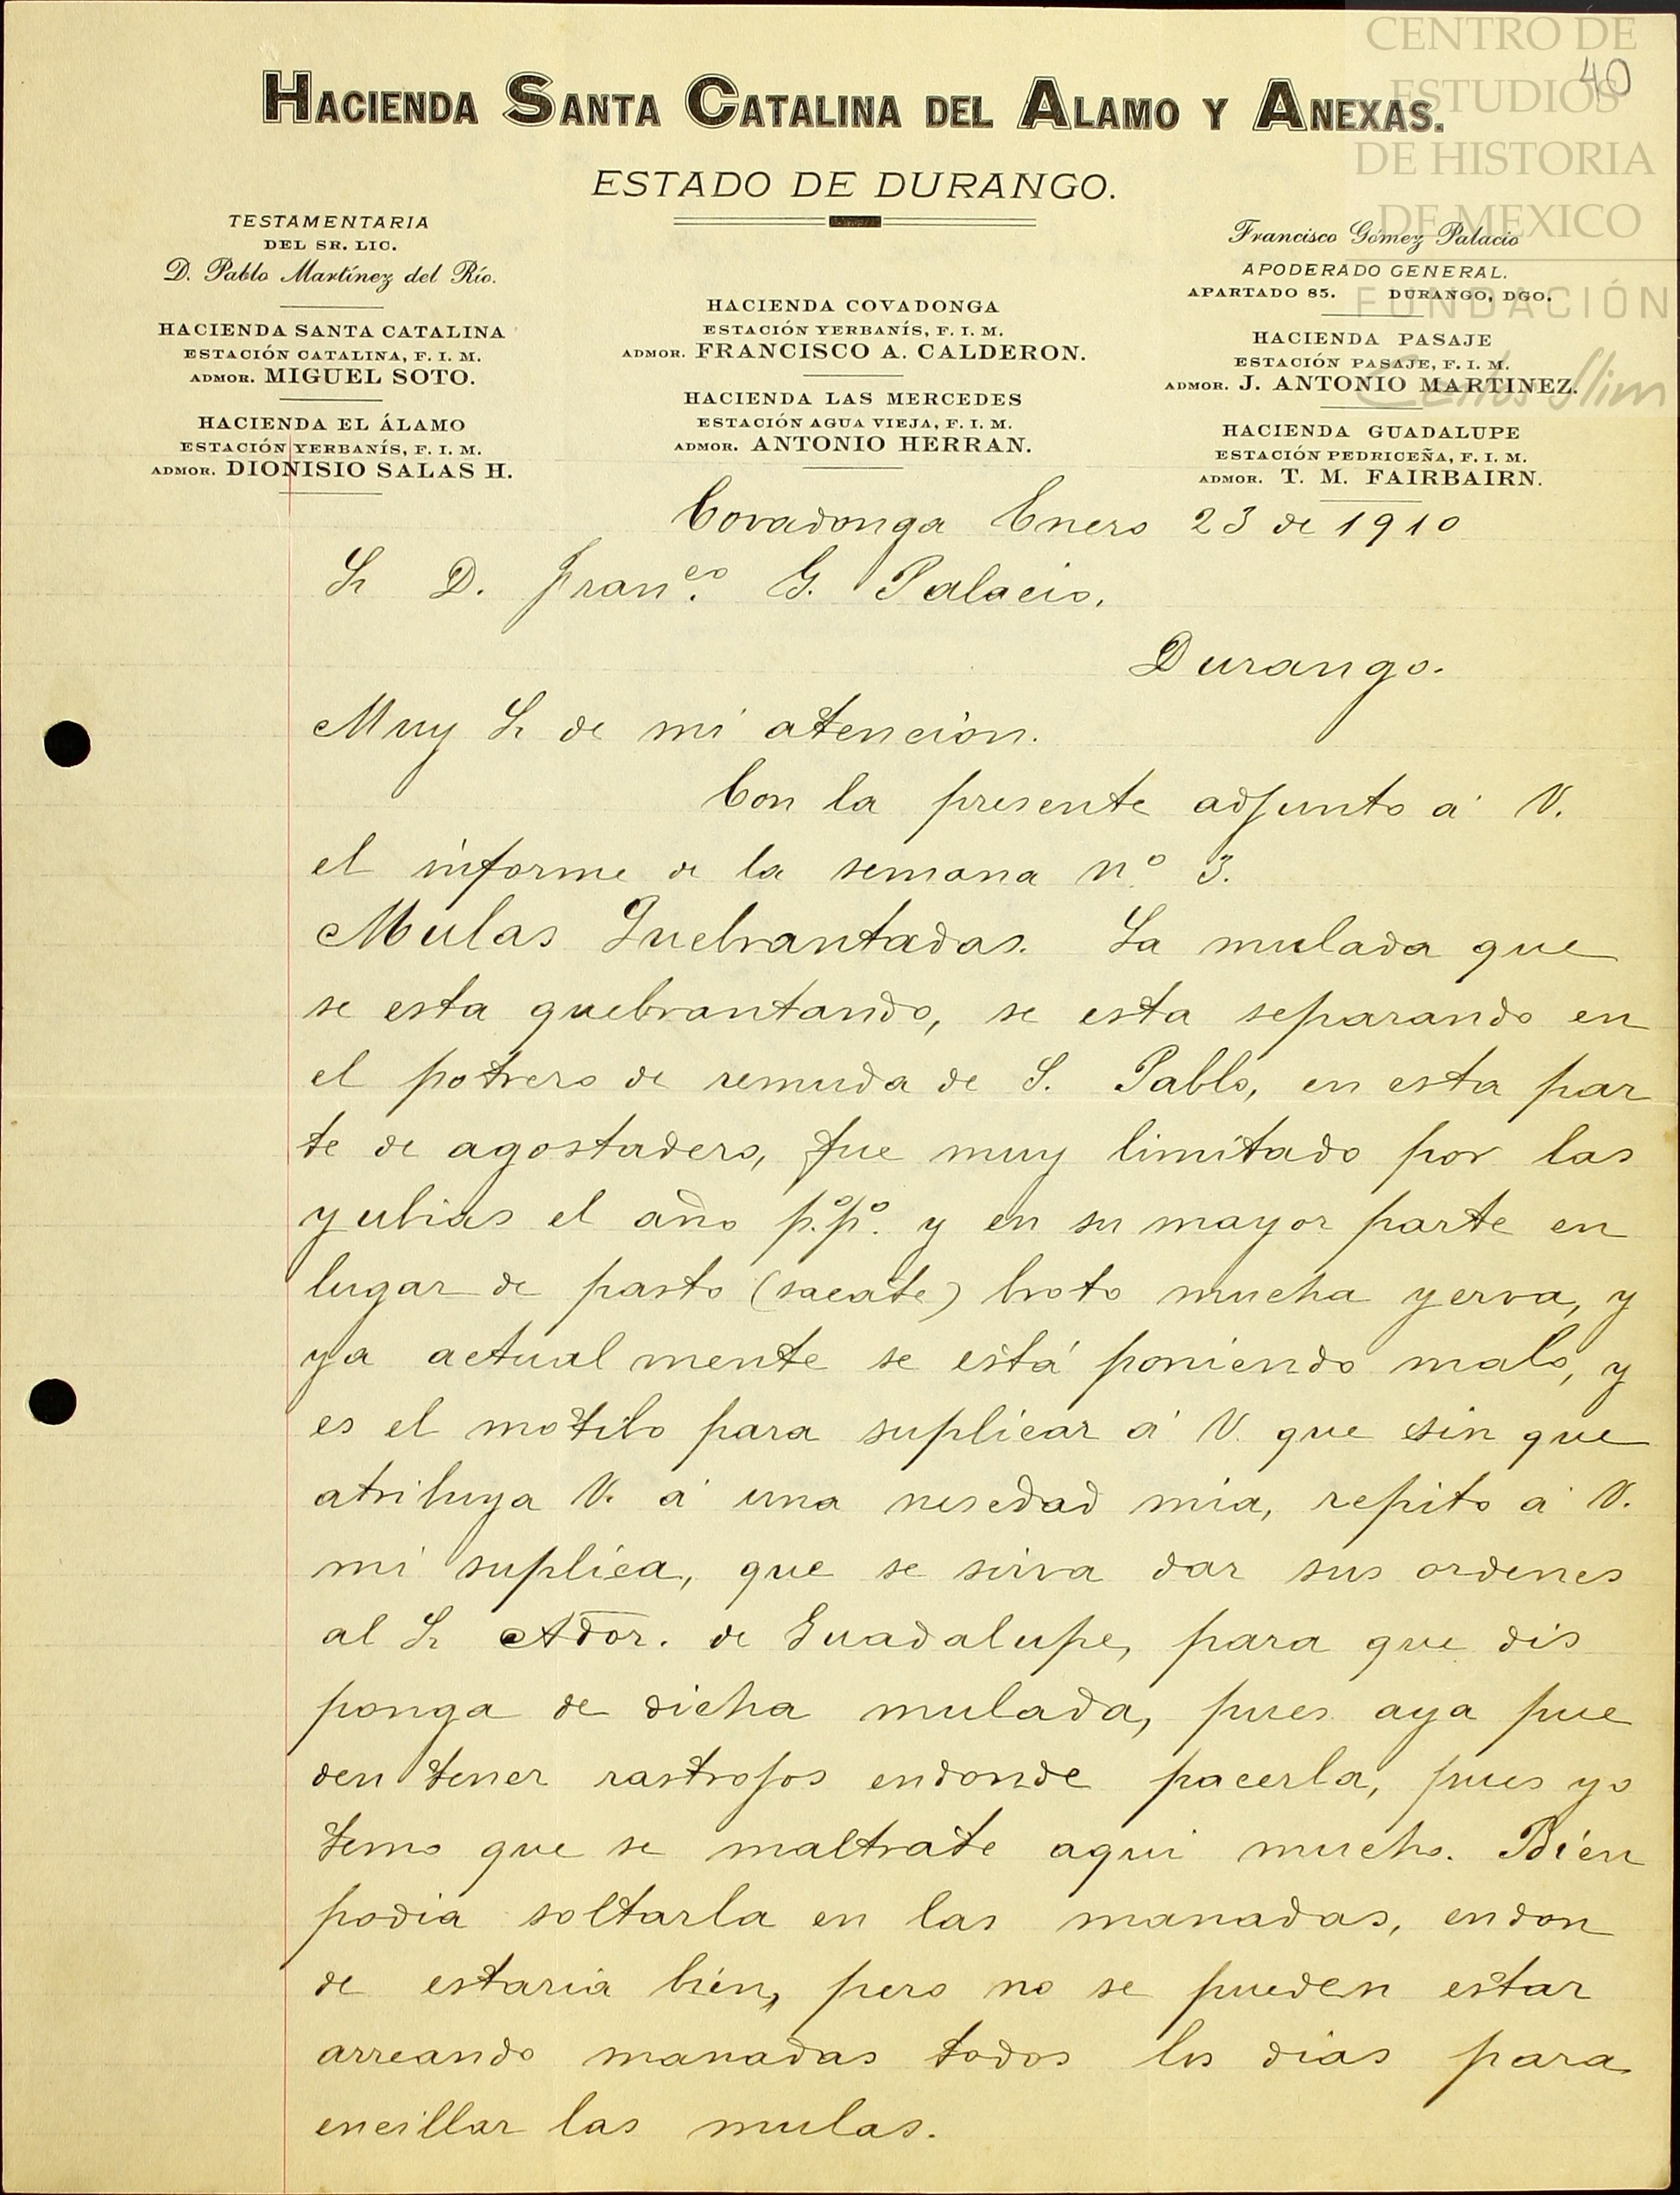 CENTRO DE
ESTUDIOS
DE HISTORIA
DE MEXICO
FUNDACIÓN
Carlos Slim
40
HACIENDA SANTA CATALINA DEL ALAMO Y ANEXAS.
ESTADO DE DURANGO.
TESTAMENTARIA
DEL SR. LIC.
D. Pablo Martínez del Río.
HACIENDA SANTA CATALINA
ESTACIÓN CATALINA, F. I. M.
ADMOR. MIGUEL SOTO.
HACIENDA EL ÁLAMO
ESTACIÓN YERBANÍS, F. I. M.
ADMOR. DIONISIO SALAS H.
HACIENDA COVADONGA
ESTACIÓN YERBANÍS, F. I. M.
ADMOR. FRANCISCO A. CALDERON.
HACIENDA LAS MERCEDES
ESTACIÓN AGUA VIEJA, F. I. M.
ADMOR. ANTONIO HERRAN.
Francisco Gómez Palacio
APODERADO GENERAL.
APARTADO 85. DURANGO, DGO.
HACIENDA PASAJE
ESTACIÓN PASAJE, F. I. M.
ADMOR. J. ANTONIO MARTINEZ.
HACIENDA GUADALUPE
ESTACIÓN PEDRICEÑA, F. I. M.
ADMOR. T. M. FAIRBAIRN.
Covadonga Enero 23 de 1910
Sr D. Franco. G. Palacio.
Durango.
Muy Sr de mi atención.
Con la presente adjunto á V.
el informe de la semana nº 3.
Mulas Quebrantadas. La mulada que
se esta quebrantando, se esta separando en
el potrero de remuda de S. Pablo, en esta par
te de agostadero, fue muy limitado por las
yubias el año p.º p.º y en su mayor parte en
lugar de pasto (sacate) broto mucha yerva, y
ya actual mente se está poniendo malo, y
es el motibo para suplicar á V. que sin que
atribuya V. á una nesedad mia, repito á V.
mi suplica, que se sirva dar sus ordenes
al Sr Ador. de Guadalupe, para que dis
ponga de dicha mulada, pues aya pue
den tener rastrojos endonde pacerla, pues yo
temo que se maltrate aqui mucho. Bién
podia soltarla en las manadas, endon
de estaria bién, pero no se pueden estar
arreando manadas todos los dias para
encillar las mulas.